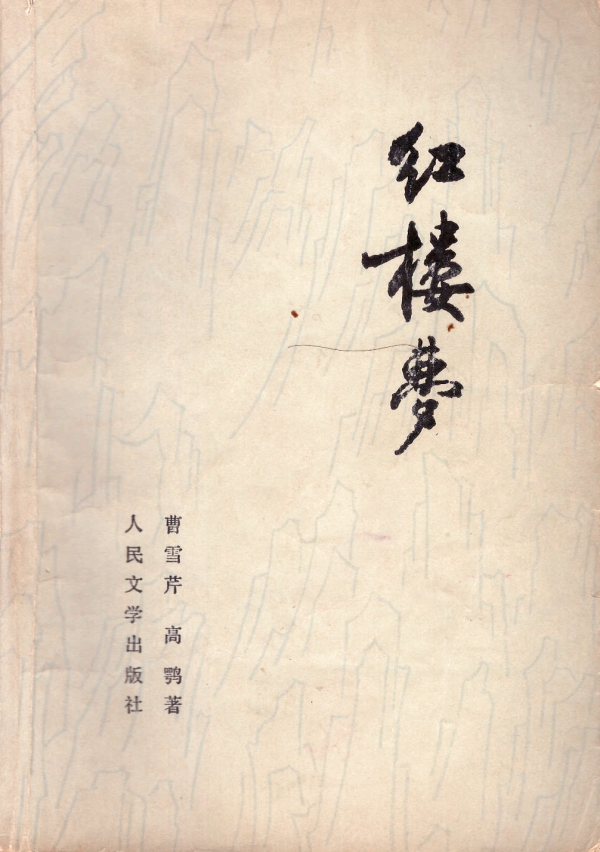 红楼夢
曹雪芹 高鹗著
人民文学出版社